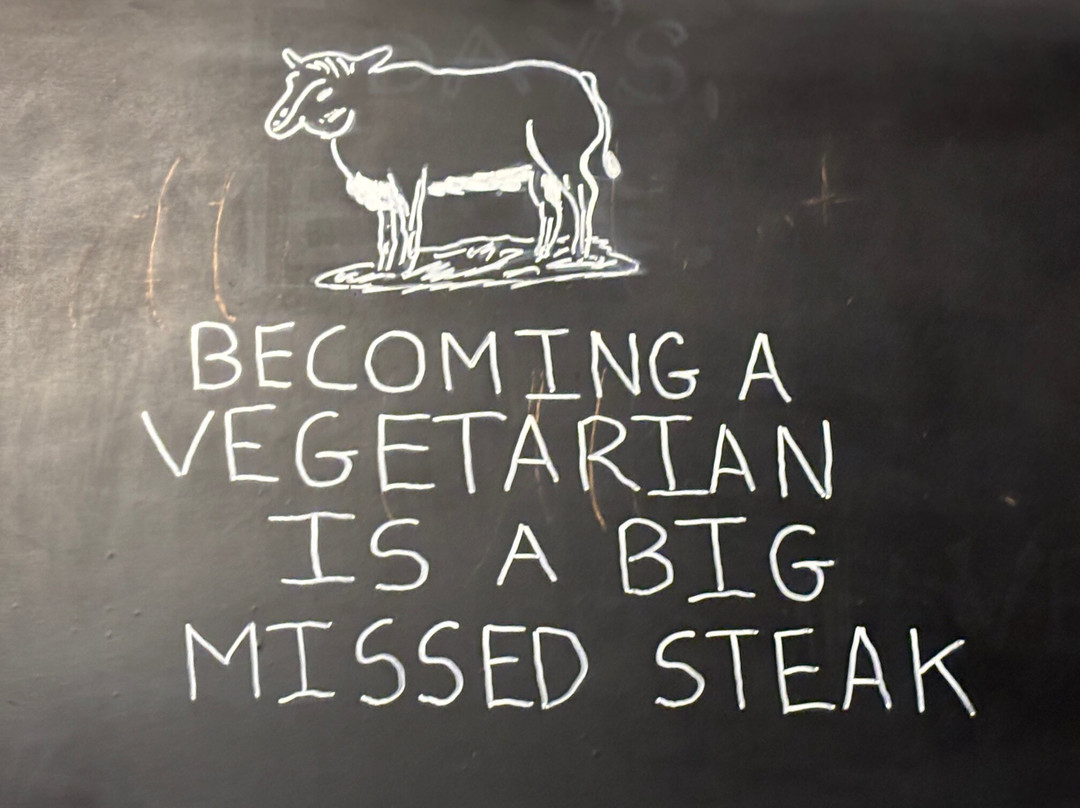 BECOMING A
VEGETARIAN
IS A BIG
MISSED STEAK